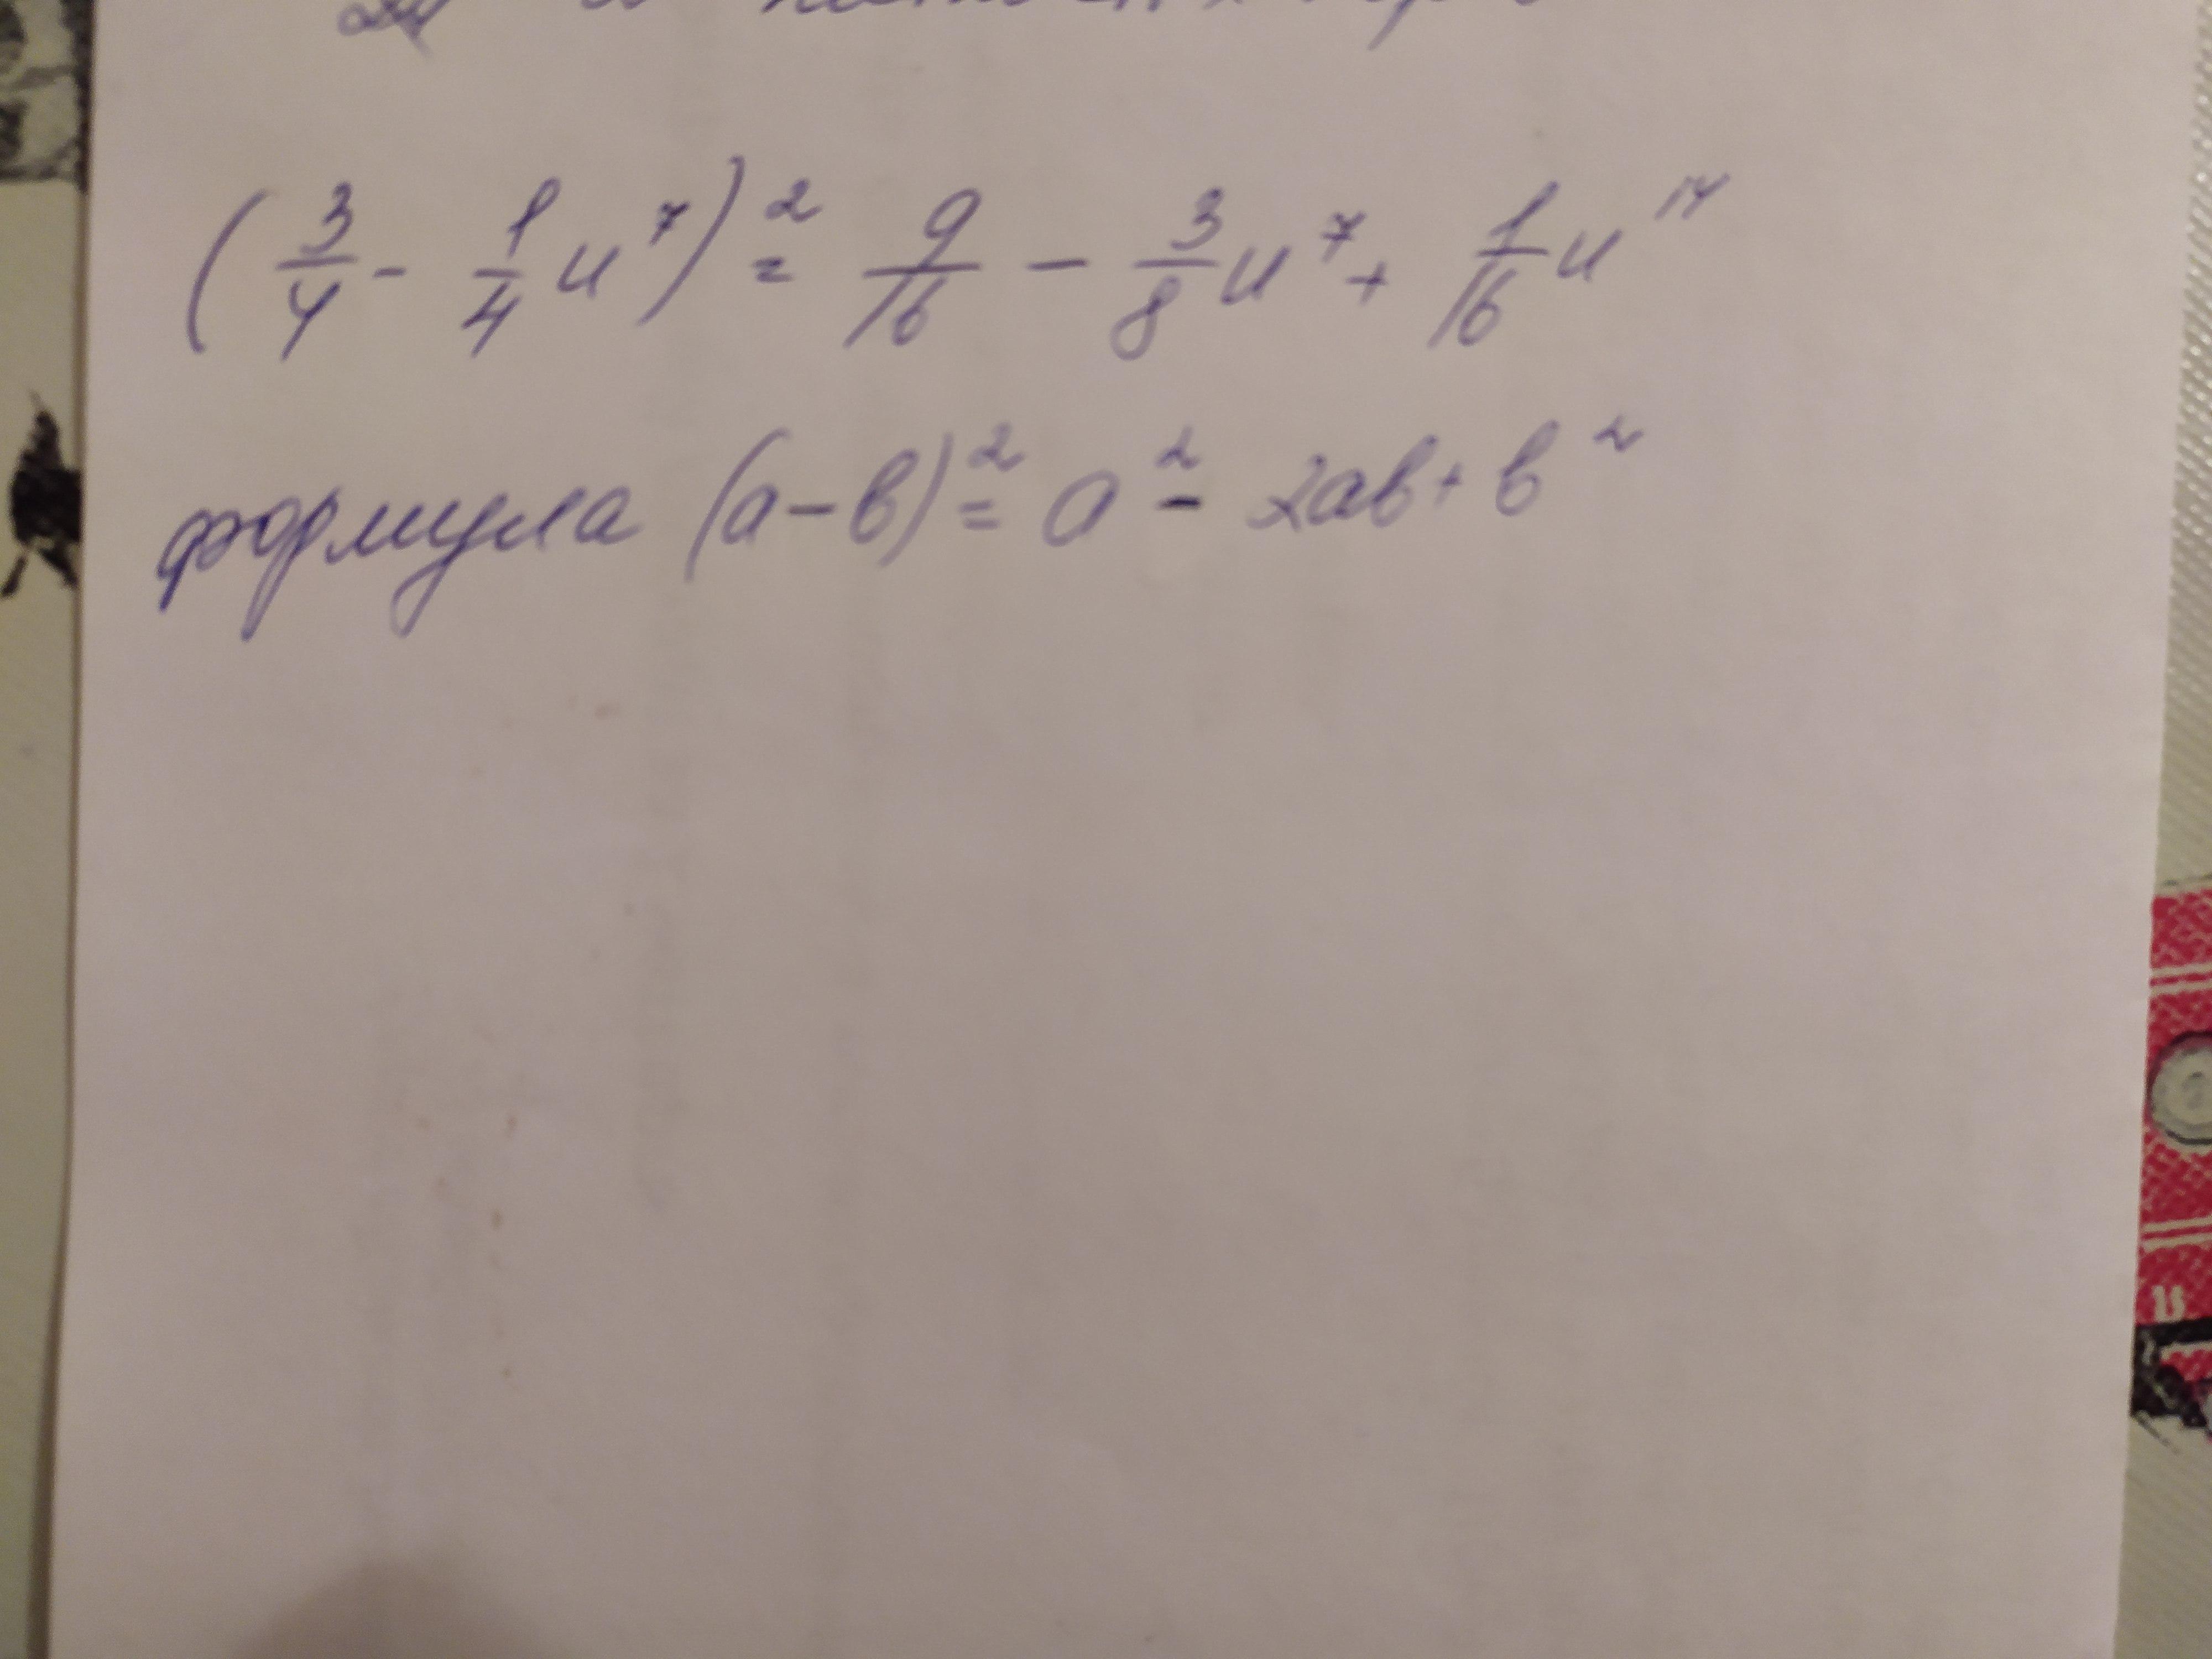 (3/4 - 1/4 u⁷)² = 9/16 - 3/8 u⁷ + 1/16 u¹⁴
формула (a-в)² = a² - 2ав + в²